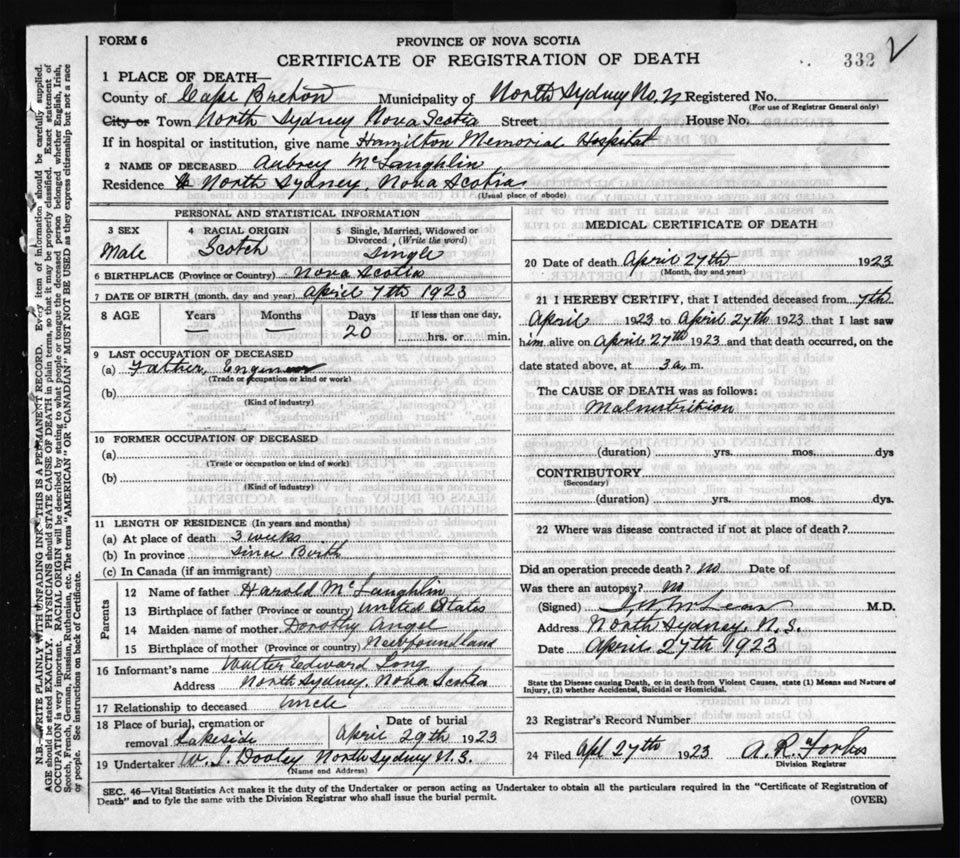 FORM 6
PROVINCE OF NOVA SCOTIA
CERTIFICATE OF REGISTRATION OF DEATH
332
1 PLACE OF DEATH—
County of Cape Breton Municipality of North Sydney No. Registered No.
(For use of Registrar General only)
City or Town North Sydney Nova Scotia Street House No.
If in hospital or institution, give name Hamilton Memorial Hospital
2 NAME OF DECEASED Aubrey McLaughlin
Residence North Sydney, Nova Scotia
(Usual place of abode)
PERSONAL AND STATISTICAL INFORMATION
3 SEX
Male
4 RACIAL ORIGIN
Scotch
5 Single, Married, Widowed or Divorced (Write the word)
Single
6 BIRTHPLACE (Province or Country) Nova Scotia
7 DATE OF BIRTH (month, day and year) April 7th 1923
8 AGE Years Months Days If less than one day,
— — 20 hrs. or min.
9 LAST OCCUPATION OF DECEASED
(a) Father, Engineer
(Trade or occupation or kind of work)
(b)
(Kind of industry)
10 FORMER OCCUPATION OF DECEASED
(a)
(Trade or occupation or kind of work)
(b)
(Kind of industry)
11 LENGTH OF RESIDENCE (In years and months)
(a) At place of death 3 weeks
(b) In province since Birth
(c) In Canada (if an immigrant)
Parents
12 Name of father Harold McLaughlin
13 Birthplace of father (Province or country) United States
14 Maiden name of mother Dorothy Angel
15 Birthplace of mother (Province or country) Newfoundland
16 Informant's name Walter Edward Long
Address North Sydney, Nova Scotia
17 Relationship to deceased Uncle
18 Place of burial, cremation or removal Lakeside
Date of burial April 29th 1923
19 Undertaker W. J. Dooley North Sydney N.S.
(Name and Address)
MEDICAL CERTIFICATE OF DEATH
20 Date of death April 27th 1923
(Month, day and year)
21 I HEREBY CERTIFY, that I attended deceased from 7th
April 1923 to April 27th 1923 that I last saw
him alive on April 27th 1923 and that death occurred, on the
date stated above, at 3 a. m.
The CAUSE OF DEATH was as follows:
Malnutrition
(duration) yrs. mos. dys
CONTRIBUTORY
(Secondary)
(duration) yrs. mos. dys.
22 Where was disease contracted if not at place of death?
Did an operation precede death? no Date of
Was there an autopsy? no
(Signed) McLean M.D.
Address North Sydney, N.S.
Date April 27th 1923
State the Disease causing Death, or in death from Violent Causes, state (1) Means and Nature of
Injury, (2) whether Accidental, Suicidal or Homicidal.
23 Registrar's Record Number
24 Filed Apl 27th 1923 A. R. Forbes
Division Registrar
SEC. 46—Vital Statistics Act makes it the duty of the Undertaker or person acting as Undertaker to obtain all the particulars required in the "Certificate of Registration of
Death" and to fyle the same with the Division Registrar who shall issue the burial permit.
(OVER)
N.B.—WRITE PLAINLY WITH UNFADING INK. THIS IS A PERMANENT RECORD. Every item of information should be carefully supplied.
AGE should be stated EXACTLY. PHYSICIANS should STATE CAUSE OF DEATH in plain terms, so that it may be properly classified. Exact statement of
OCCUPATION is very important. RACIAL ORIGIN will be described by stating to what people or tongue the deceased person belonged whether English, Irish,
Scotch, French, German, Russian, Ruthenian, etc. The terms "AMERICAN" OR "CANADIAN" MUST NOT BE USED as they express citizenship but not a race
or people. See instructions on back of Certificate.